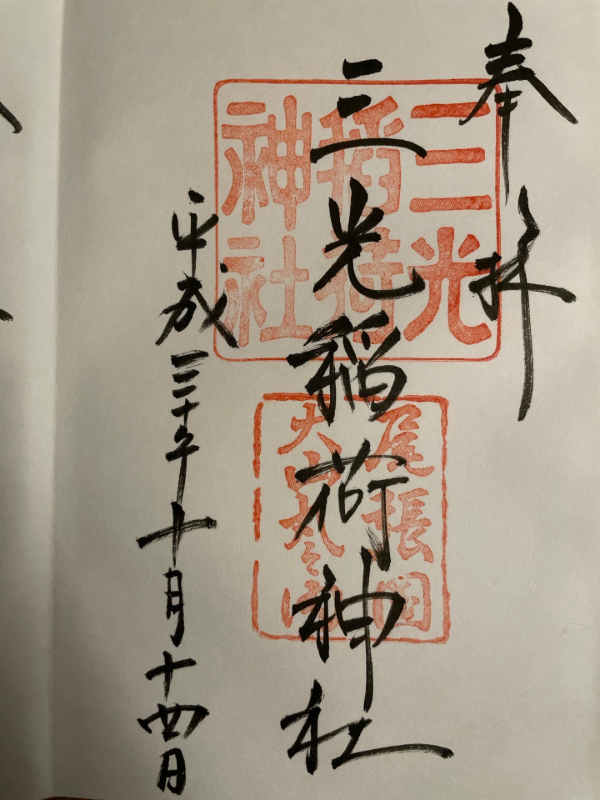 奉拝
三光稲荷神社
平成三十年十月十四日
三光
稲荷
神社
尾張国
犬山